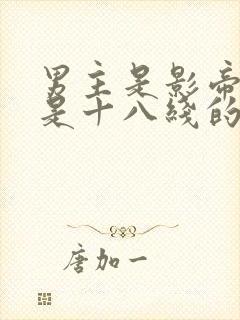 男主是影帝
是十八线的
唐加一